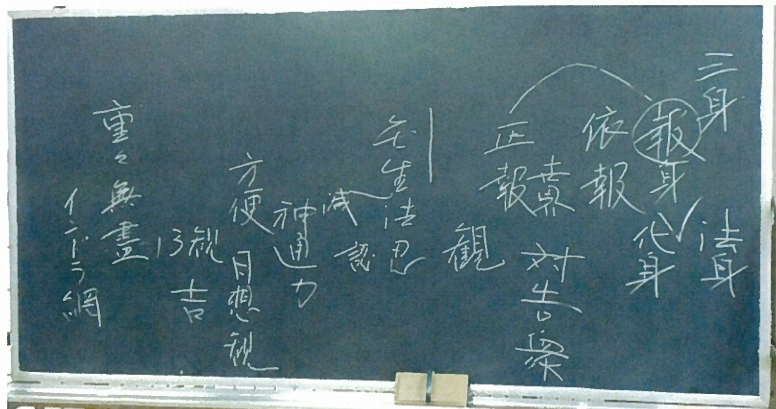 三身
法身
報身
化身
依報
正報
対告衆
観
無生法忍
滅
認
神通力
方便
日想観
13観
吉
重々無盡
インドラ網